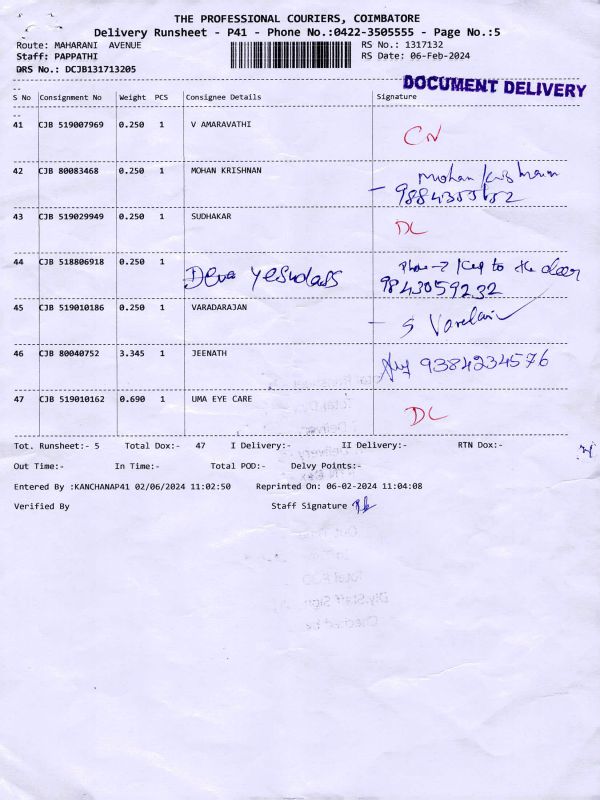 THE PROFESSIONAL COURIERS, COIMBATORE
Delivery Runsheet - P41 - Phone No.:0422-3505555 - Page No.:5
Route: MAHARANI AVENUE RS No.: 1317132
Staff: PAPPATHI RS Date: 06-Feb-2024
DRS No.: DCJB131713205
DOCUMENT DELIVERY
S No Consignment No Weight PCS Consignee Details Signature
41 CJB 519007969 0.250 1 V AMARAVATHI CN
42 CJB 80083468 0.250 1 MOHAN KRISHNAN Mohan Krishnan
43 CJB 519029949 0.250 1 SUDHAKAR DL
44 CJB 518806918 0.250 1 Deva Yesudass to the door
9843059232
45 CJB 519010186 0.250 1 VARADARAJAN S
46 CJB 80040752 3.345 1 JEENATH 9384234576
47 CJB 519010162 0.690 1 UMA EYE CARE DL
Tot. Runsheet:- 5 Total Dox:- 47 I Delivery:- II Delivery:- RTN Dox:-
Out Time:- In Time:- Total POD:- Delvy Points:-
Entered By :KANCHANAP41 02/06/2024 11:02:50 Reprinted On: 06-02-2024 11:04:08
Verified By Staff Signature